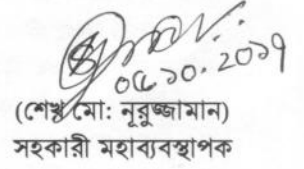 ০৫.১০.২০১৭
(শেখ মো: নূরুজ্জামান)
সহকারী মহাব্যবস্থাপক